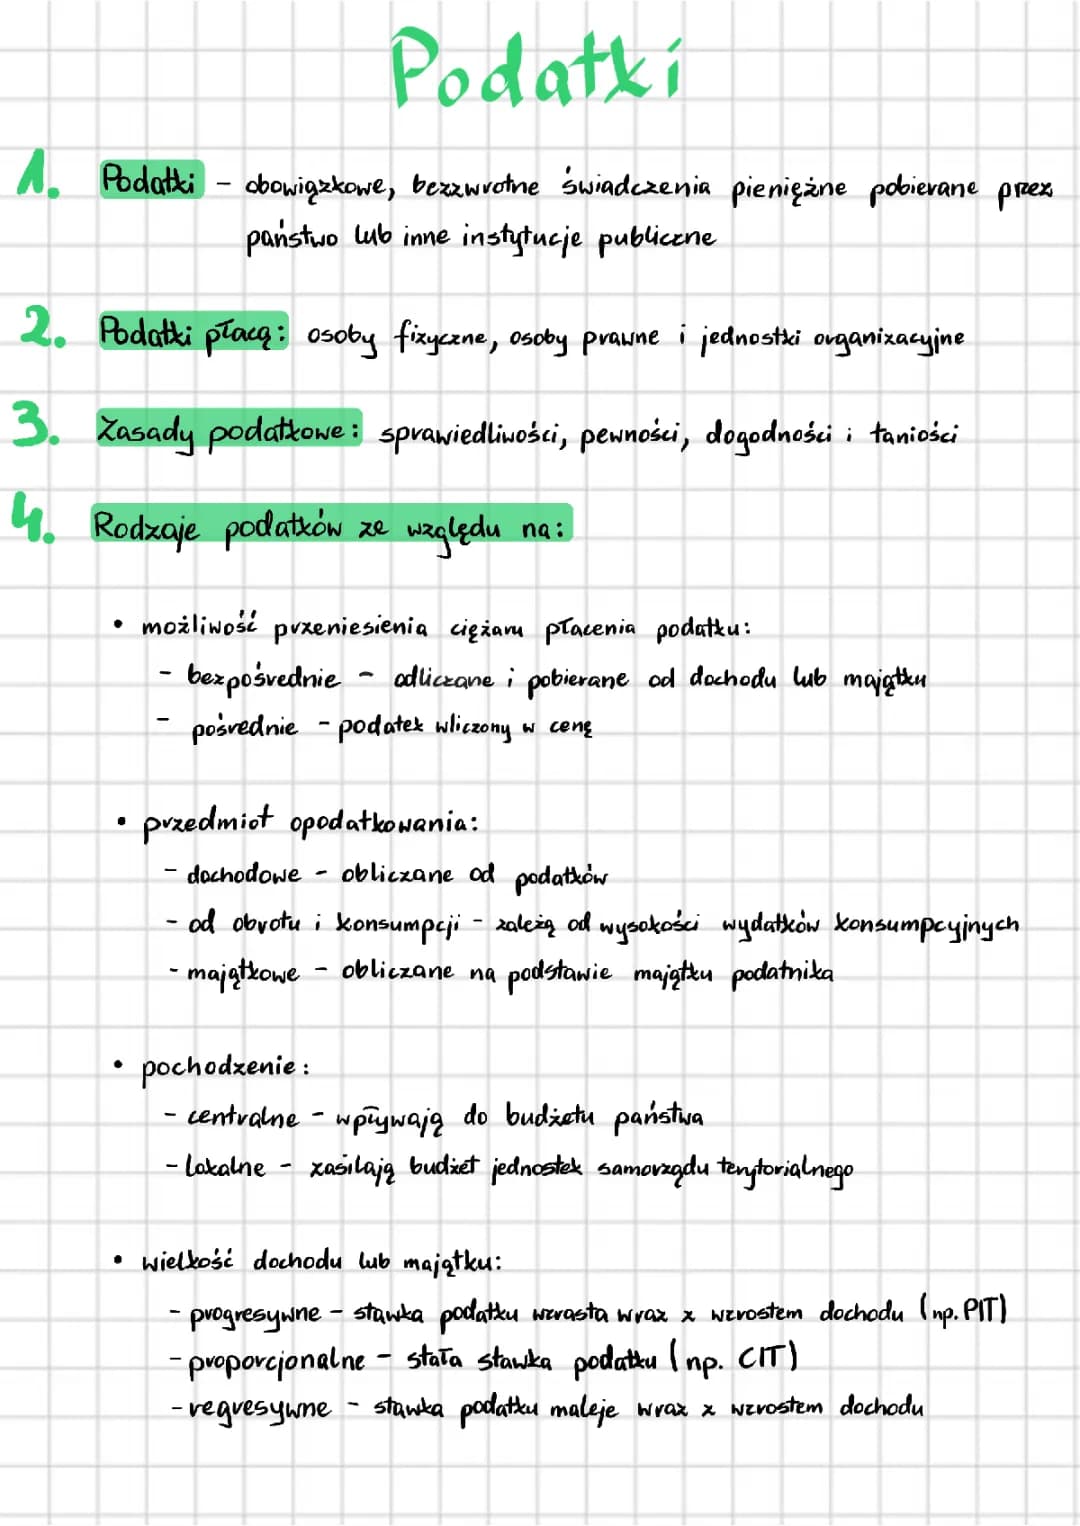 Podatki
1. Podatki - obowiązkowe, bezzwrotne świadczenia pieniężne pobierane przez
państwo lub inne instytucje publiczne
2. Podatki płacą: osoby fizyczne, osoby prawne i jednostki organizacyjne
3. Zasady podatkowe: sprawiedliwości, pewności, dogodności i taniości
4. Rodzaje podatków ze względu na:
• możliwość przeniesienia ciężaru płacenia podatku:
- bezpośrednie - odliczane i pobierane od dochodu lub majątku
- pośrednie - podatek wliczony w cenę
• przedmiot opodatkowania:
- dochodowe - obliczane od podatków
- od obrotu i konsumpcji - zależą od wysokości wydatków konsumpcyjnych
- majątkowe - obliczane na podstawie majątku podatnika
• pochodzenie:
- centralne - wpływają do budżetu państwa
- lokalne - zasilają budżet jednostek samorządu terytorialnego
• wielkość dochodu lub majątku:
- progresywne - stawka podatku wzrasta wraz z wzrostem dochodu (np. PIT)
- proporcjonalne - stała stawka podatku (np. CIT)
- regresywne - stawka podatku maleje wraz z wzrostem dochodu